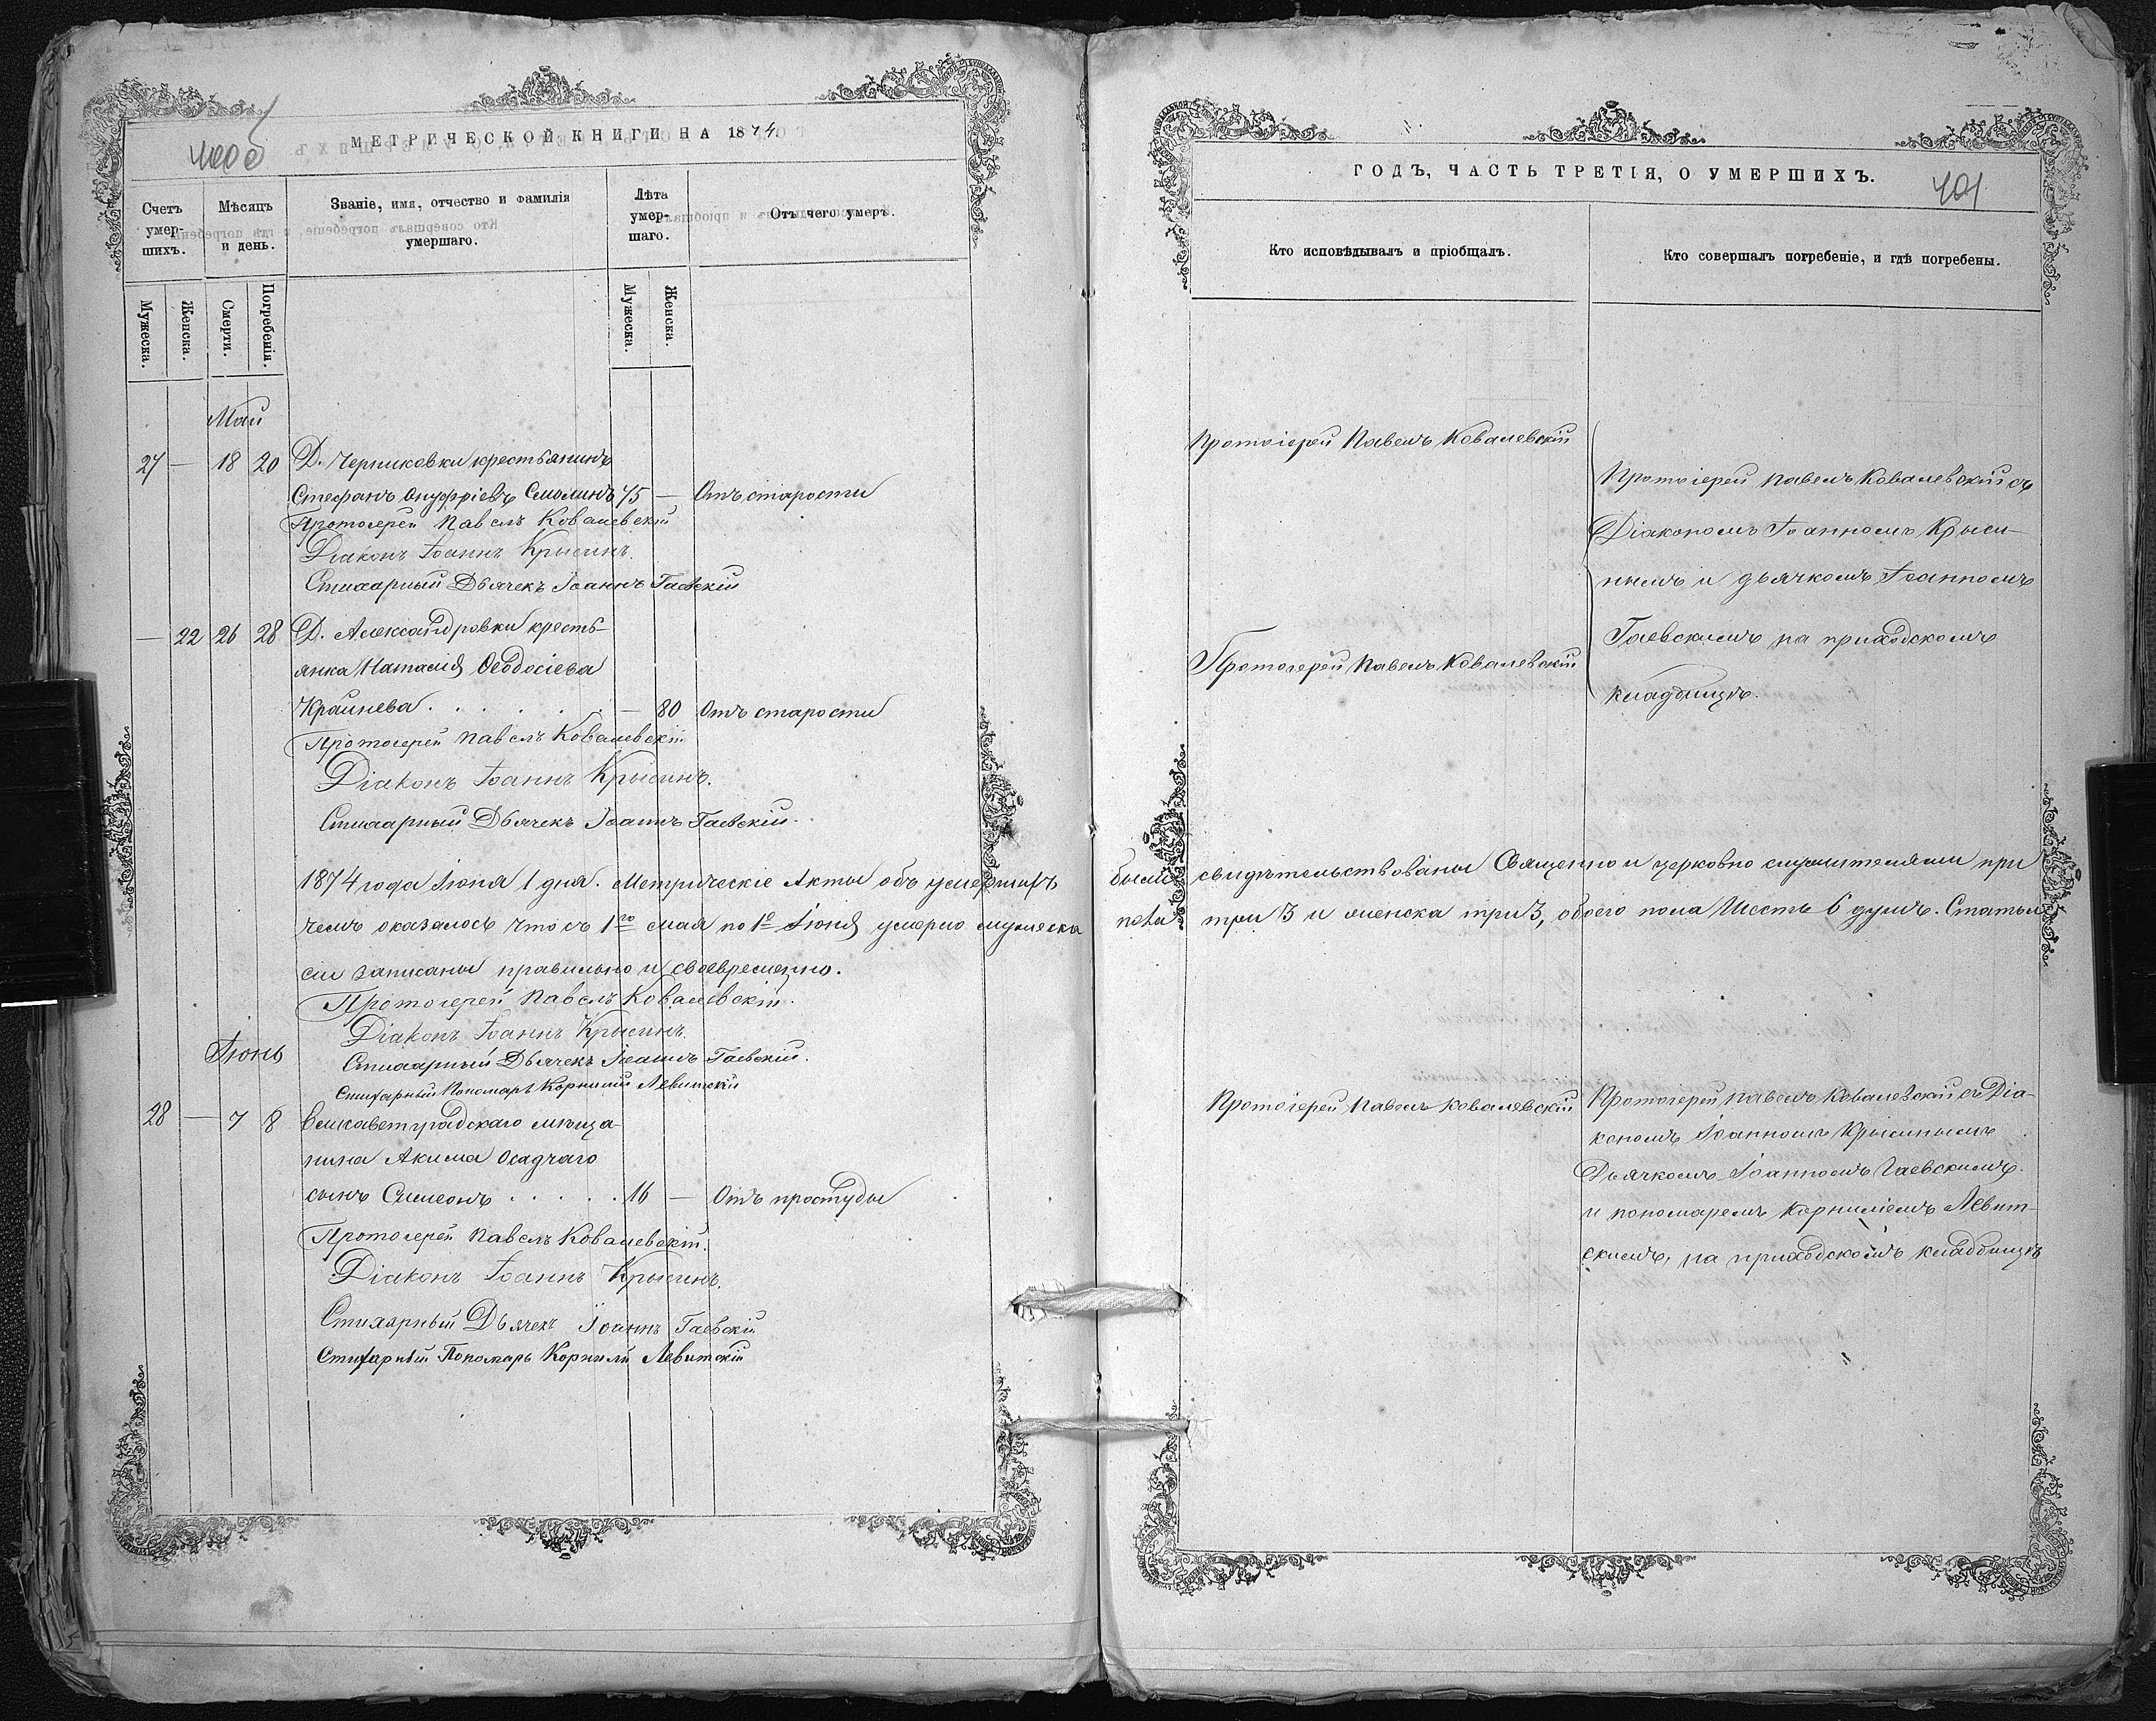 МЕТРИЧЕСКОЙ КНИГИ НА 1874
400 об
Счетъ умер-шихъ.
Мѣсяцъ и день.
Званіе, имя, отчество и фамилія умершаго.
Лѣта умер-шаго.
Отъ чего умеръ.
Мужеска.
Женска.
Смерти.
Погребенія.
Мужеска.
Женска.
Май
27 — 18 20 Д. Черниковки крестьянинъ
Стефанъ Онуфріевъ Смолинъ 75 — Отъ старости
Протоіерей Павелъ Ковалевскій
Діаконъ Іоаннъ Крысинъ.
Стихарный Дьячекъ Іоаннъ Гаевскій
— 22 26 28 Д. Александровки кресть-
янка Наталія Ѳеодосіева
Крайнева . . . . . . — 80 Отъ старости
Протоіерей Павелъ Ковалевскій
Діаконъ Іоаннъ Крысинъ.
Стихарный Дьячекъ Іоаннъ Гаевскій.
1874 года Іюня 1 дня. Метрическіе Акты объ умершихъ
чемъ оказалось что съ 1го мая по 1е Іюня умерло мужеска
сіи записаны правильно и своевременно.
Протоіерей Павелъ Ковалевскій.
Діаконъ Іоаннъ Крысинъ.
Стихарный Дьячекъ Іоаннъ Гаевскій.
Стихарный Пономарь Корнилій Левитскій
Іюнь
28 — 7 8 Елисаветградскаго мѣща-
нина Акима Осадчаго
сынъ Симеонъ . . . . . 16 — Отъ простуды
Протоіерей Павелъ Ковалевскій.
Діаконъ Іоаннъ Крысинъ.
Стихарный Дьячекъ Іоаннъ Гаевскій
Стихарный Пономарь Корнилій Левитскій
ГОДЪ, ЧАСТЬ ТРЕТІЯ, О УМЕРШИХЪ.
401
Кто исповѣдывалъ и пріобщалъ.
Кто совершалъ погребеніе, и гдѣ погребены.
Протоіерей Павелъ Ковалевскій
Протоіерей Павелъ Ковалевскій съ
Діакономъ Іоанномъ Крыси-
нымъ и дьячкомъ Іоанномъ
Гаевскимъ на приходскомъ
кладбищѣ.
Протоіерей Павелъ Ковалевскій
были свидѣтельствованы Священно и церковно служителями при
пола три 3 и женска три 3, обоего пола Шесть 6 душъ. Статьи
Протоіерей Павелъ Ковалевскій
Протоіерей Павелъ Ковалевскій съ Діа-
кономъ Іоанномъ Крысинымъ
Дьячкомъ Іоанномъ Гаевскимъ
и пономаремъ Корниліемъ Левит-
скимъ, на приходскомъ кладбищѣ